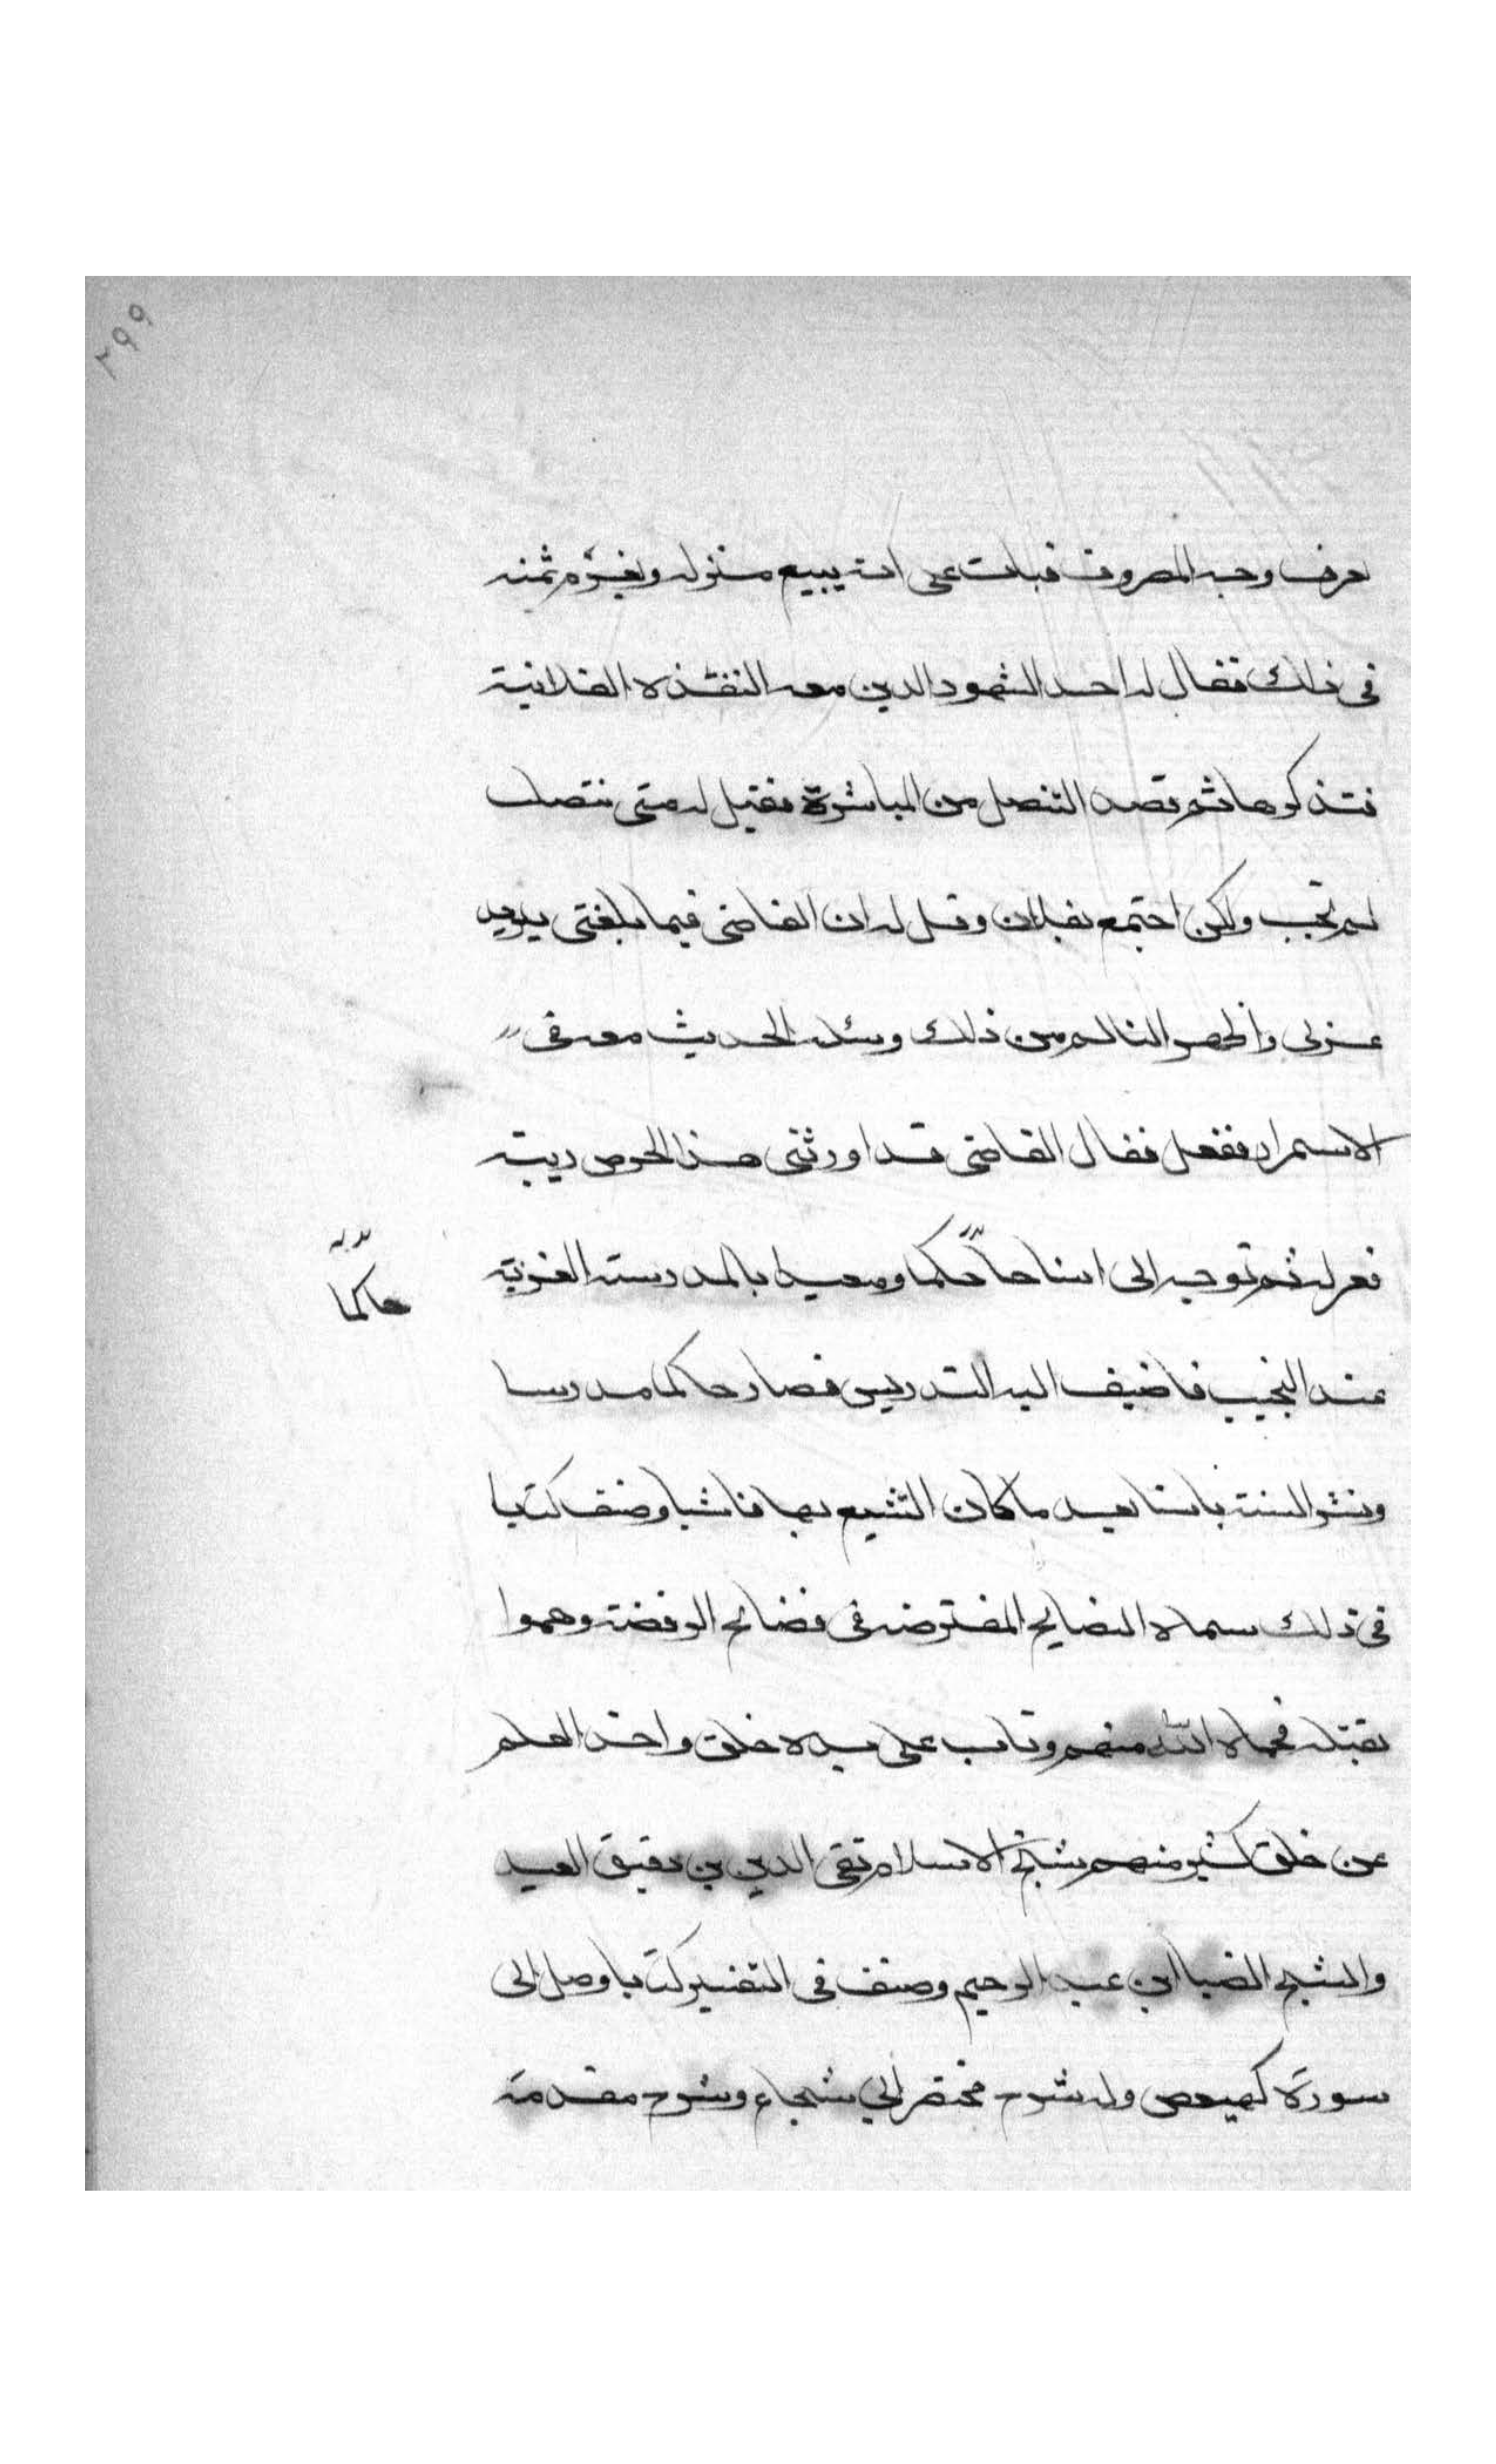 ٢٩٩
يعرف وجه المصروف فبات على انه يبيع منزله ويغرم ثمنه
فى ذلك فقال له احد الشهود الدين معه النقدة الفلانية
فتذكرها ثم قصد التنصل من المباشرة فقيل له متى تنصلت
لم تجب ولكن اجتمع بفلان وقل له ان القاضى فيما بلغنى يريد
عزلى واظهر التالم من ذلك وسئله الحديث معه فى
الاستمرار ففعل فقال القاضى قد اورثنى هذا الحرص ريبة
فعزله ثم توجه الى اسنا حاكما ومعيدا بالمدرسة العزية
حاكما
عند النجيب فاضيف اليه التدريس فصار حاكما مدرسا
ونشر السنة باسنا بعد ما كان التشيع بها فاشيا وصنف كتابا
فى ذلك سماه النصايح المفترضه فى فضائح الرفضة وهموا
بقتله فحماه الله منهم وتاب على يده خلق واخذ العلم
عن خلق كثير منهم شيخ الاسلام تقى الدين بن دقيق العيد
والشيخ الضيا ابن عبد الرحيم وصنف فى التفسير كتابا وصل الى
سورة كهيعص وله شرح مختصر ابي شجاع وشرح مقدمة